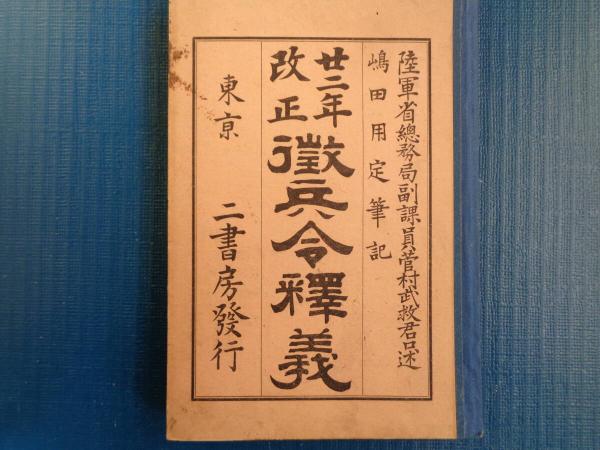 陸軍省總務局副課員菅村武救君口述
嶋田用定筆記
廿二年
改正
徵兵令釋義
東京 二書房發行